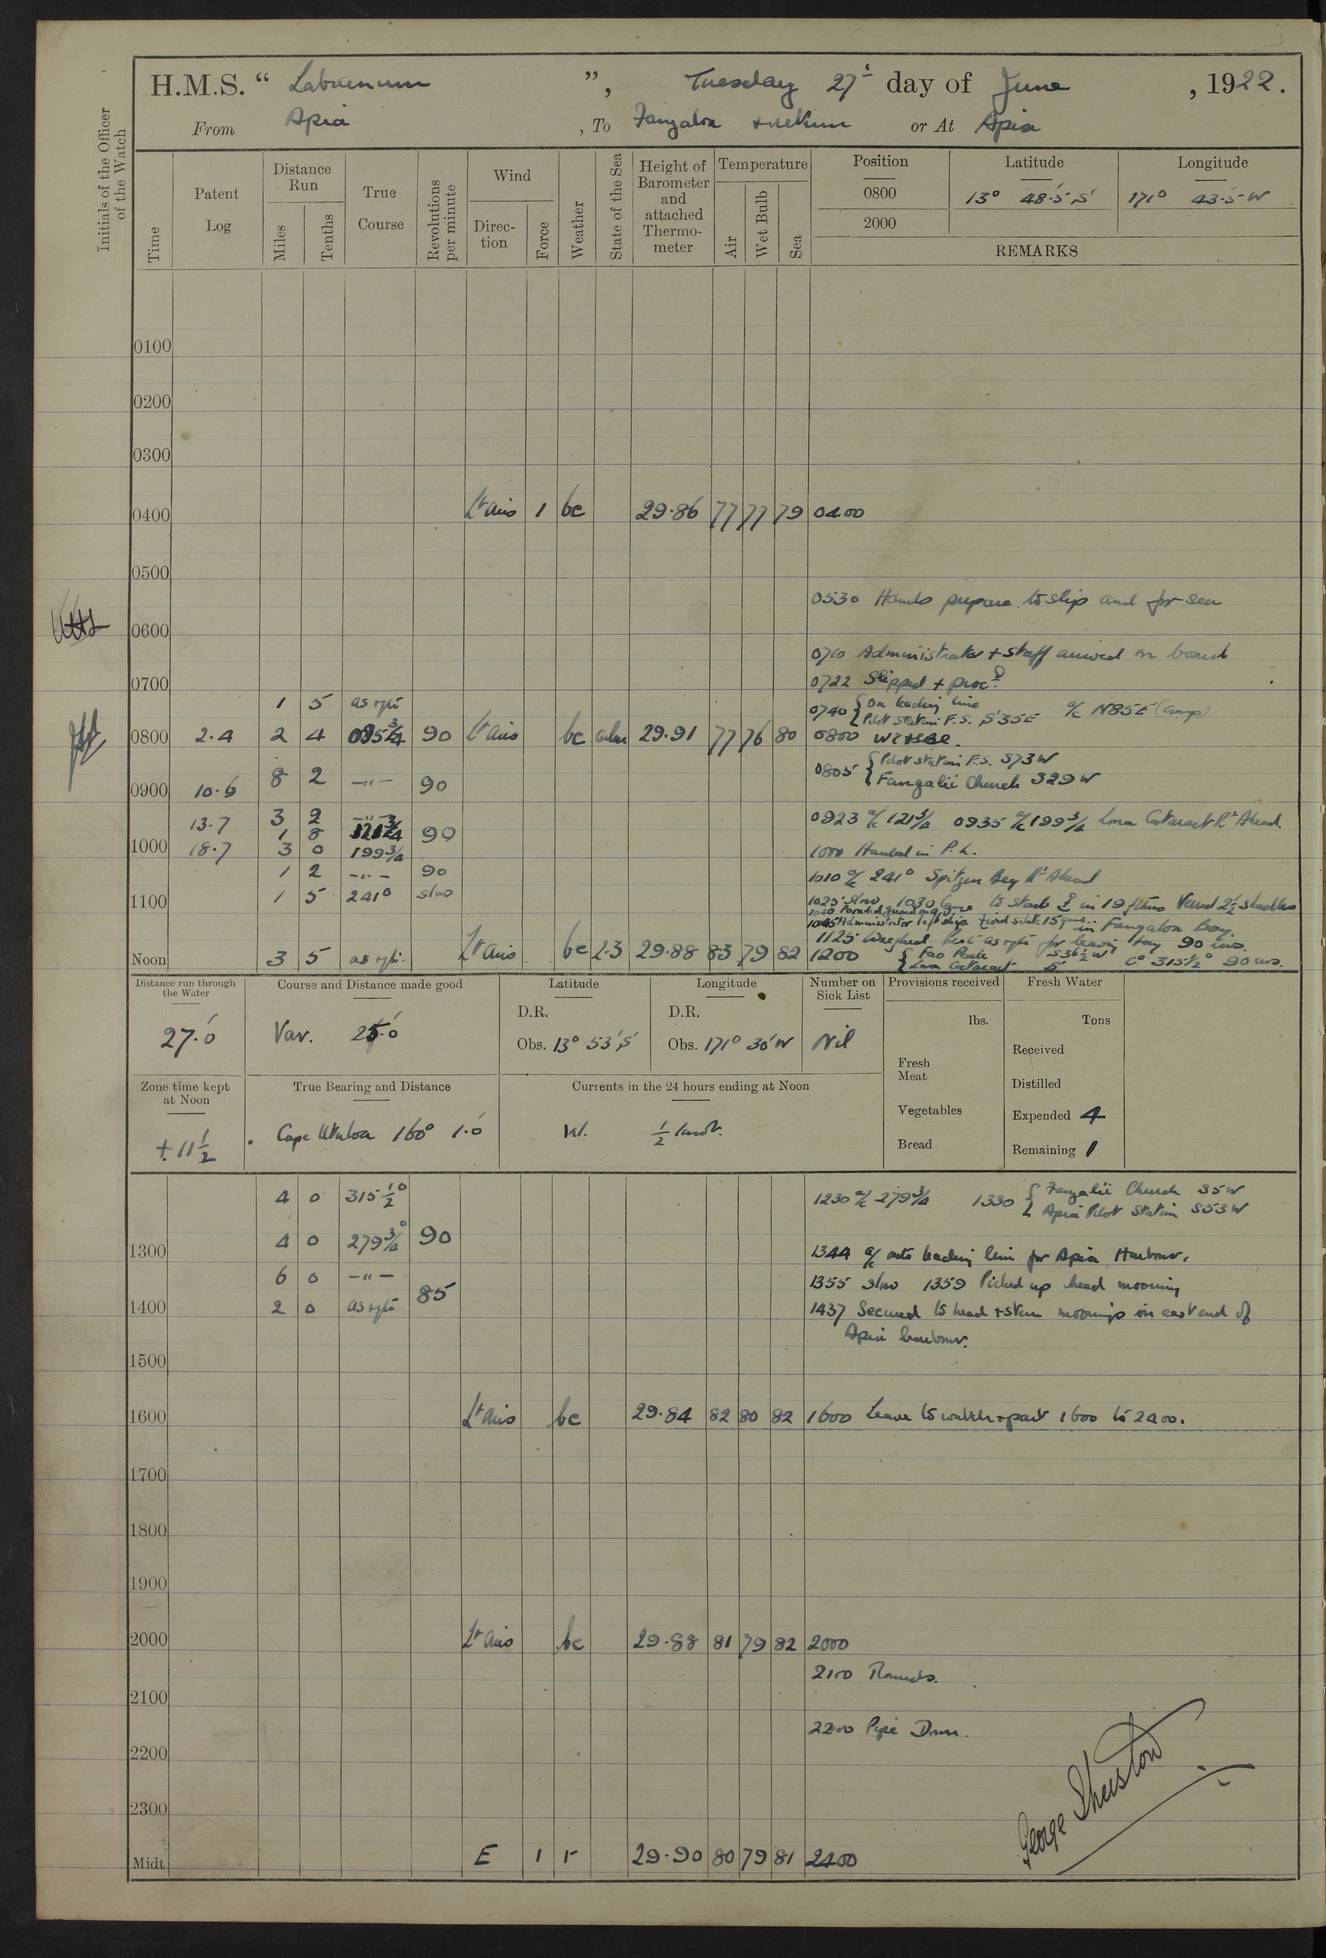 H.M.S. “ Laburnum ”, Tuesday 27th day of June, 1922.
From Apia, To Fangaloa & return or At Apia
Initials of the Officer of the Watch
Time
Patent Log
Distance Run
Miles
Tenths
True Course
Revolutions per minute
Wind
Direction
Force
Weather
State of the Sea
Height of Barometer and attached Thermometer
Temperature
Air
Wet Bulb
Sea
Position Latitude Longitude
0800 13° 48·5' S 171° 43·5' W
2000
REMARKS
0100
0200
0300
0400 Lt airs 1 bc 29·86 77 77 79 0400
0500
0530 Hands prepare to slip and for sea
0600
0710 Administrator + staff arrived on board
0700
0722 Slipped + procd
1 5 as reqte
0740 { On leading line
Pilot Station F.S. S 35 E a/c N85E (Comp)
0800 2·4 2 4 085 3/4 90 Lt airs bc calm 29·91 77 76 80 0800
0805 { Pilot station F.S. S73W
Fangalii Church 329 W
0900 10·6 8 2 —"— 90
13·7 3 2 —"—
0923 a/c 121 3/4 0935 a/c 199 3/4 Lona Cataract Rt Ahead.
1 8 121 3/4 90
1000 18·7 3 0 199 3/4
1000 Hauled in P.L.
1 2 —"— 90
1010 a/c 241° Spitzen Berg Rt Ahead
1100 1 5 241° slow
1025 Slow 1030 Came to Starb in 19 fthms Veered 2 1/2 shackles
1040 Paraded guard
1045 Administrator left ship Fired salute 15 guns in Fangaloa Bay.
1125 Weighed, Proc as reqte for leaving bay 90 revs.
Noon 3 5 as reqte Lt airs bc 2·3 29·88 83 79 82 1200 { Fao Peak S36 1/2 W
Lona Cataract S Co 315 1/2° 90 revs.
Distance run through the Water
27·0'
Course and Distance made good
Var.
Latitude
D.R.
Obs. 13° 53' S
Longitude
D.R.
Obs. 171° 36' W
Number on Sick List
Nil
Provisions received
lbs.
Fresh Meat
Vegetables
Bread
Fresh Water
Tons
Received
Distilled
Expended 4
Remaining 1
Zone time kept at Noon
+ 11 1/2
True Bearing and Distance
Cape Utuloa 160° 1·0'
Currents in the 24 hours ending at Noon
1/2 knot.
4 0 315 1/2°
1230 a/c 279 3/4 1330 { Fangalii Church 35W
Apia Pilot Station S53W
1300 4 0 279 3/4° 90
1344 a/c onto leading line for Apia Harbour.
6 0 —"— 85
1355 slow 1359 Picked up head mooring
1400 2 0 as reqte
1437 Secured to head + stern moorings in east end of
Apia harbour.
1500
1600 Lt airs bc 29·84 82 80 82 1600 Leave to watch + part 1600 to 2400.
1700
1800
1900
2000 Lt airs bc 29·88 81 79 82 2000
2100 Rounds.
2100
2200 Pipe Down.
2200
2300
George Sherston
Midt. E 1 r 29·90 80 79 81 2400